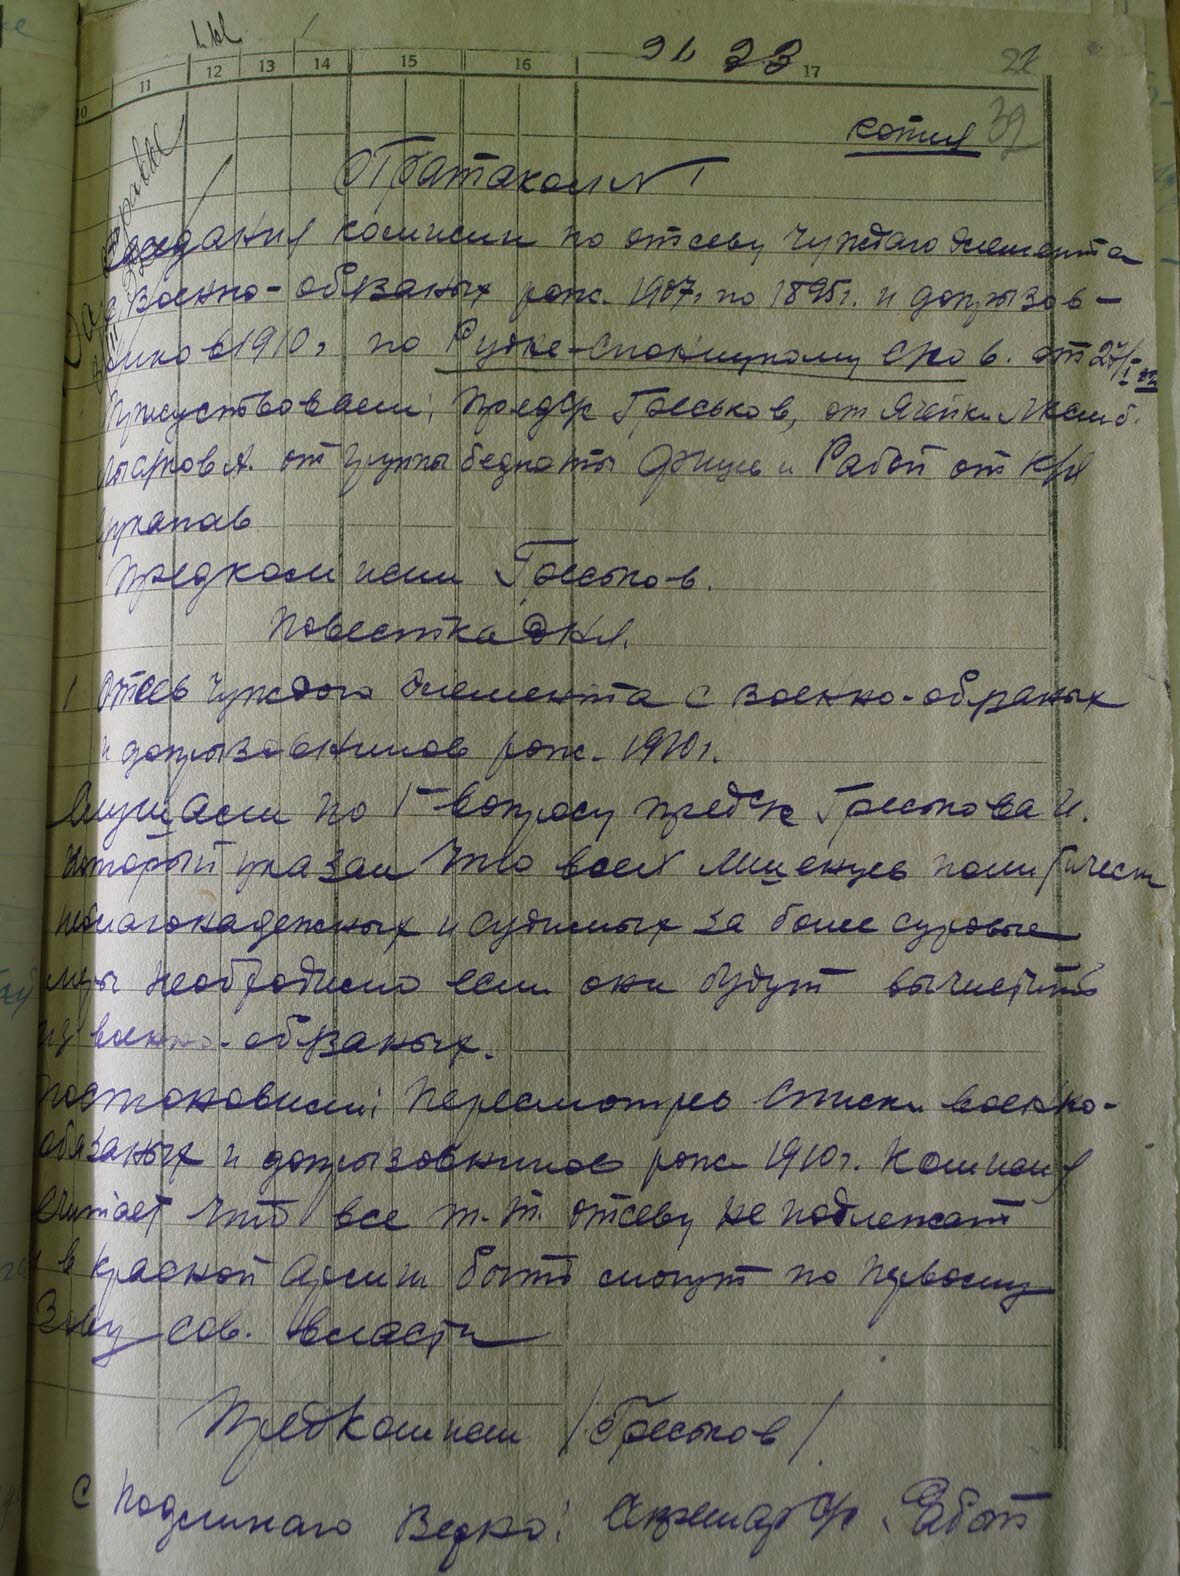 10 11 12 13 14 15 16 17
23 22
копия 32
Пратакол N 1
Заседания комисии по отсеву чуждаго элемента
с военно-обязаных рож. 1907г по 1895г. и допризов-
ников 1910г по Рудке-Споницкому с/сов. от 27/I
Присуствовали: предср Греськов, от ячейки лксмб.
от группы бедноты и Работ от
Предкомисии Греськов.
Повестка дня.
1 Отсев чуждого элемента с военно-обязаных
и допризовников рож. 1910г.
Слушали по 1 вопросу предск Греськова И.
который указал что всех лишенцев политически
неблагонадежных и судимых за более суровые
меры необходимо если они будут вычистить
из военно-обязаных.
Постоновили: Пересмотрев списки военно-
обязаных и допризовников рож 1910г. комисия
считает что все т.т. отсеву не подлежат
и в красной армии быть смогут по первому
Зову сов. власти
Предкомисии /Греськов/
С подлинаго верно: